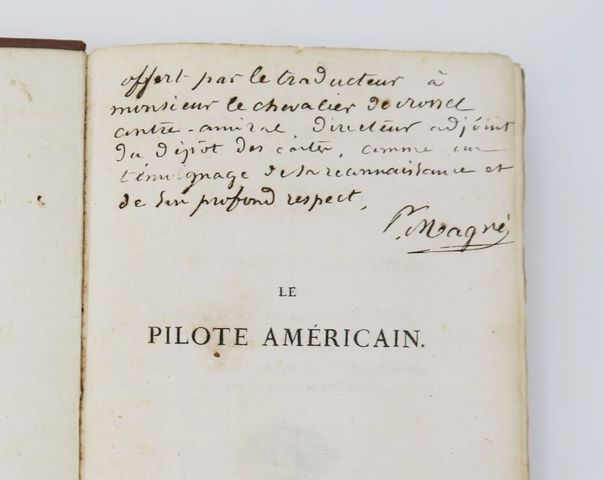 offert par le traducteur à
monsieur le chevalier de rossel
contre-amiral, directeur adjoint
du dépôt des cartes, comme un
témoignage de sa reconnaissance et
de son profond respect,
P. Magré
LE
PILOTE AMÉRICAIN.